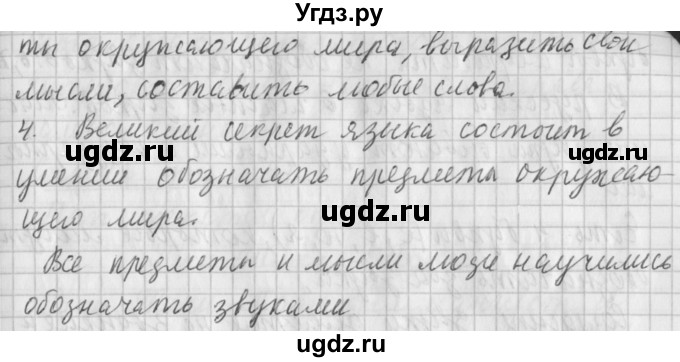 Угдз.ру
ты окружающего мира, выразить свои
мысли, составить любые слова.
4. Великий секрет языка состоит в
ugdz.ru ugdz.ru
умении обозначать предметы окружаю-
ugdz.ru
щего мира.
Все предметы и мысли люди научились
обозначать звуками
ugdz.ru ugdz.ru